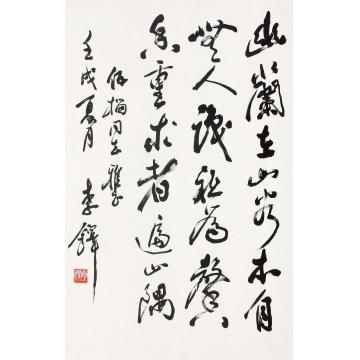 幽蘭在山谷本自
無人識祇為馨
香重求者遍山隅
同志雅正
壬戌夏月 李鐸